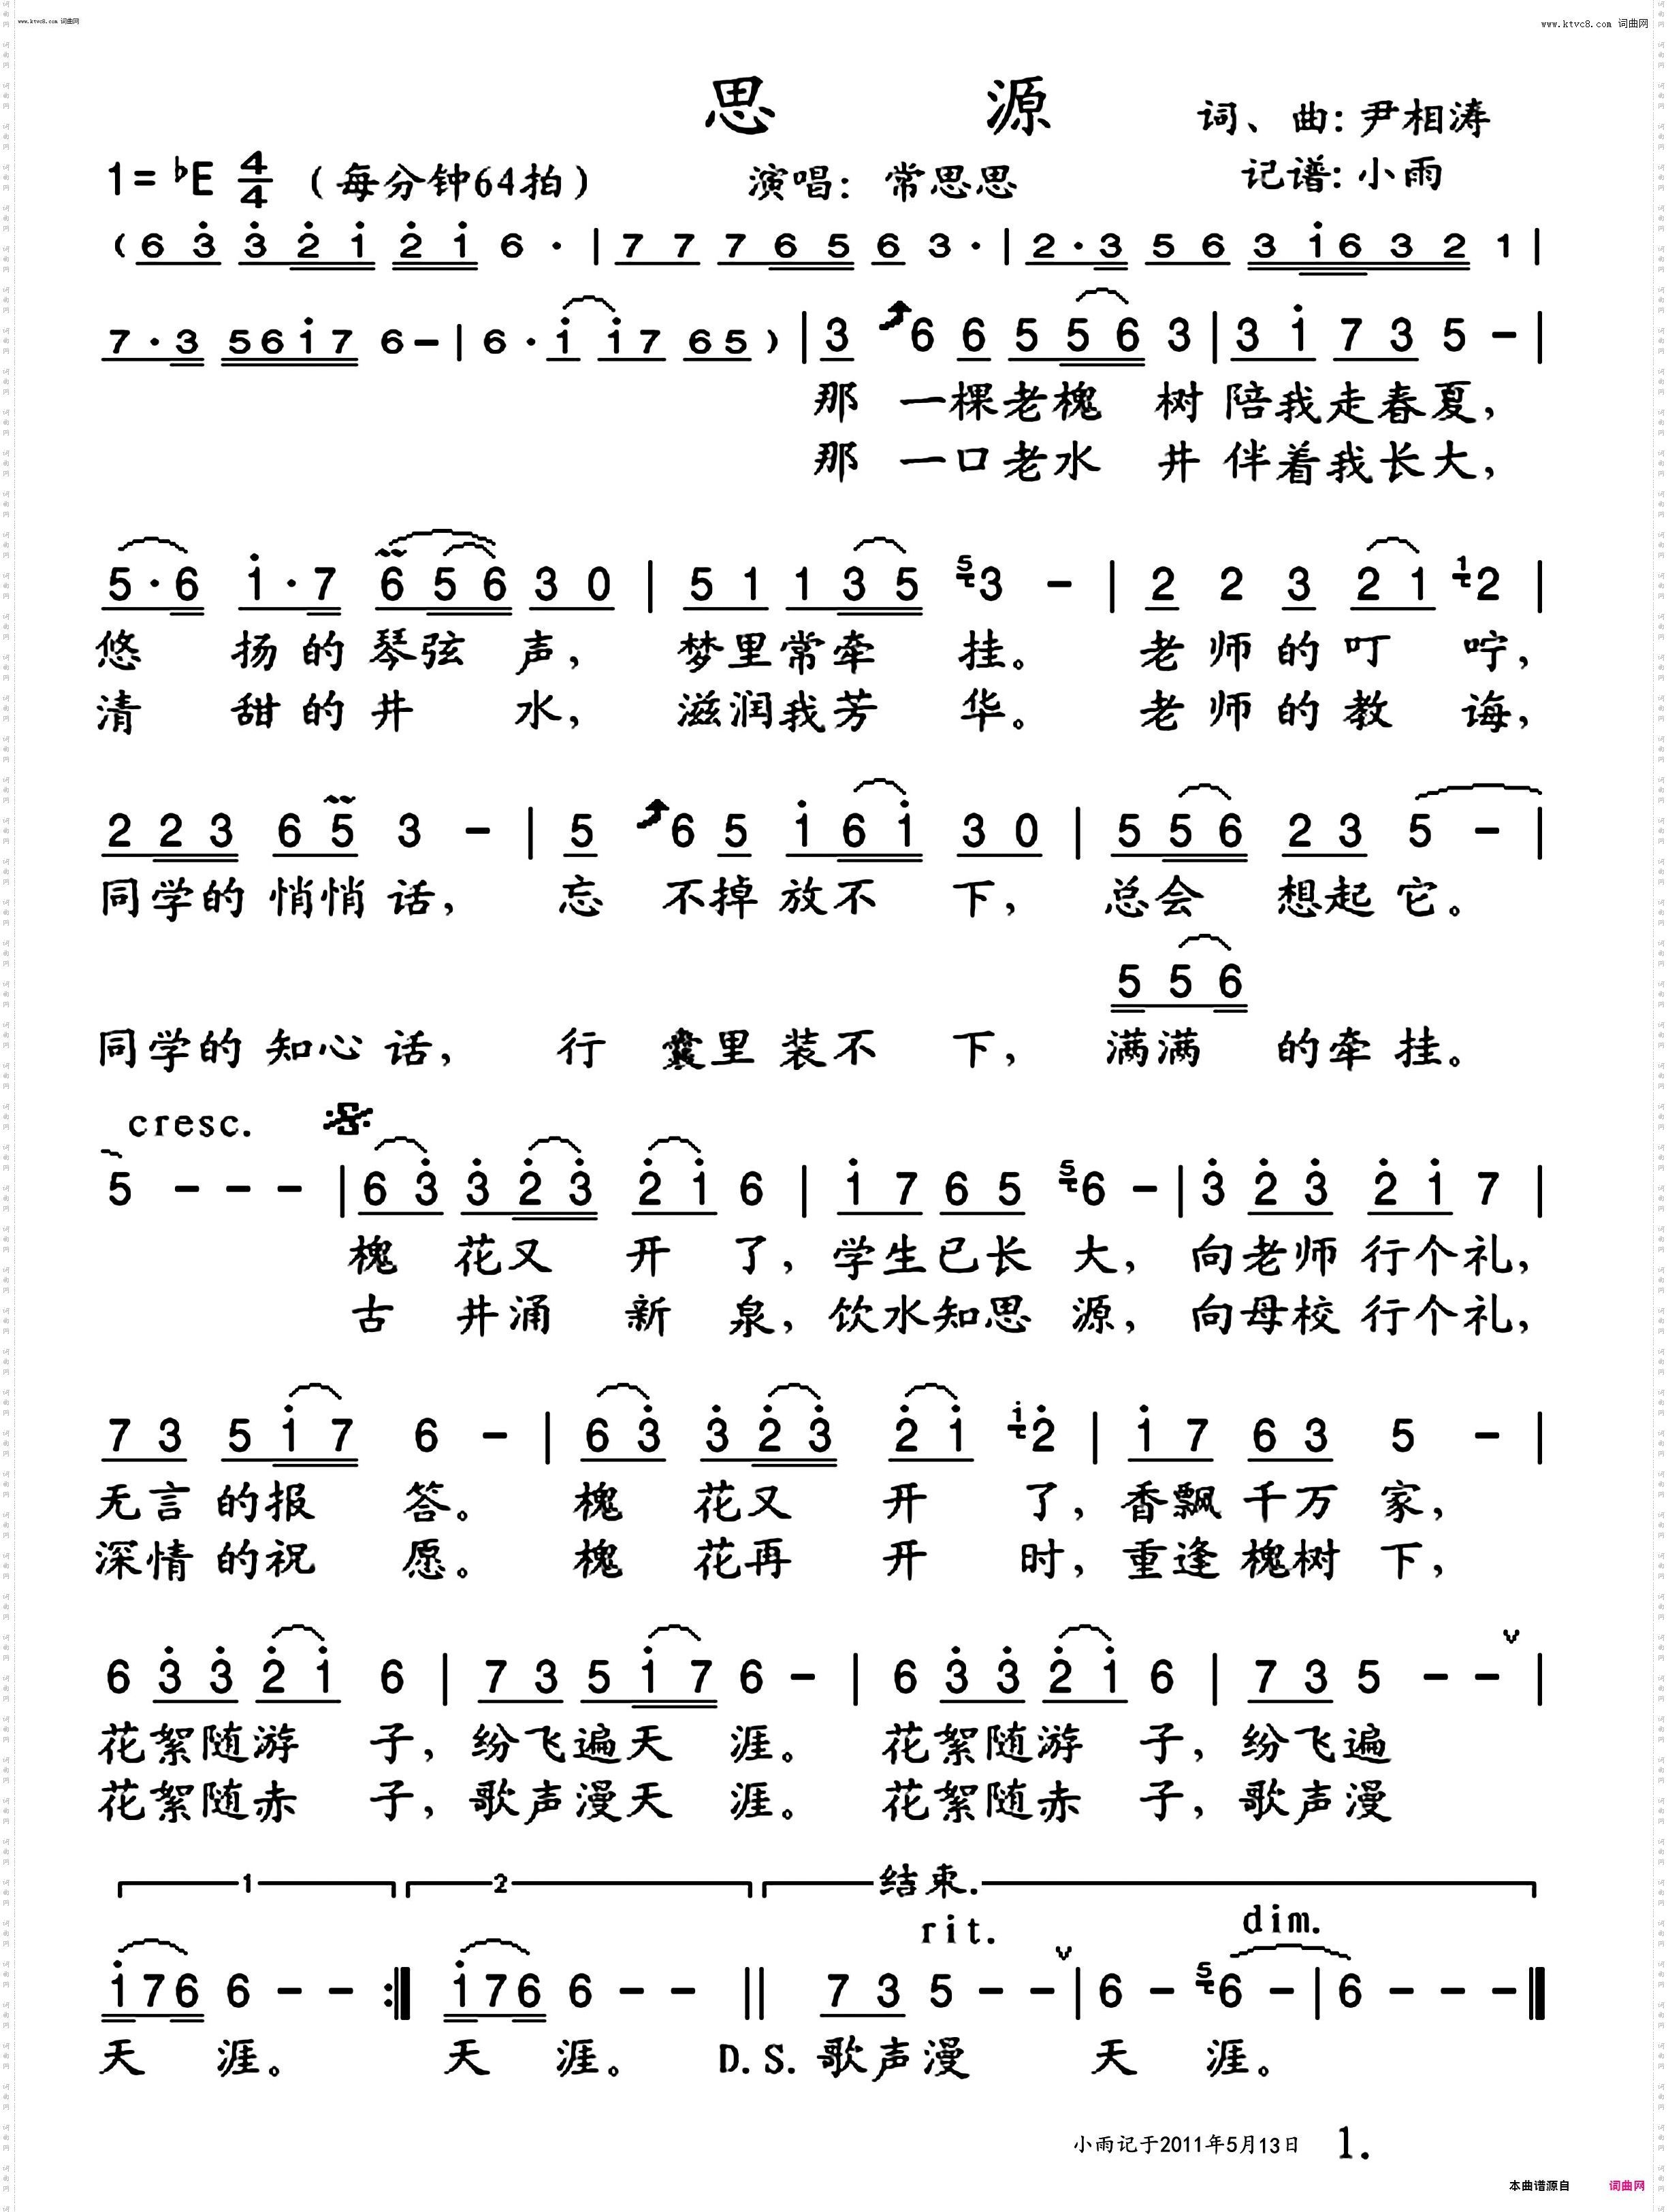 www.ktvc8.com 词曲网
www.ktvc8.com 词曲网
思 源
词、曲: 尹相涛
1= ♭E 4/4 (每分钟64拍)
演唱: 常思思
记谱: 小雨
( 6 3̇ 3̇ 2̇ 1̇ 2̇ 1̇ 6 · | 7 7 7 6 5 6 3 · | 2 · 3 5 6 3 1̇ 6 3 2 1 |
7 · 3 5 6 1̇ 7 6 – | 6 · 1̇ 1̇ 7 6 5 ) | 3 6 6 5 5 6 3 | 3 1̇ 7 3 5 – |
那 一棵老槐 树 陪我走春夏,
那 一口老水 井 伴着我长大,
5 · 6 1̇ · 7 6 5 6 3 0 | 5 1 1 3 5 5 3 – | 2 2 3 2 1 1 2 |
悠 扬的琴弦 声, 梦里常牵 挂。 老师的叮 咛,
清 甜的井 水, 滋润我芳 华。 老师的教 诲,
2 2 3 6 5 3 – | 5 6 5 1̇ 6 1̇ 3 0 | 5 5 6 2 3 5 – |
同学的悄悄话, 忘 不掉放不 下, 总会 想起它。
5 5 6
同学的知心话, 行 囊里装不 下, 满满 的牵挂。
cresc.
5 – – – | 6 3̇ 3̇ 2̇ 3̇ 2̇ 1̇ 6 | 1̇ 7 6 5 5 6 – | 3̇ 2̇ 3̇ 2̇ 1̇ 7 |
槐 花又 开 了, 学生已长 大, 向老师行个礼,
古 井涌 新 泉, 饮水知思 源, 向母校行个礼,
7 3 5 1̇ 7 6 – | 6 3̇ 3̇ 2̇ 3̇ 2̇ 1̇ 1̇ 2̇ | 1̇ 7 6 3 5 – |
无言的报 答。 槐 花又 开 了, 香飘千万 家,
深情的祝 愿。 槐 花再 开 时, 重逢槐树 下,
6 3̇ 3̇ 2̇ 1̇ 6 | 7 3 5 1̇ 7 6 – | 6 3̇ 3̇ 2̇ 1̇ 6 | 7 3 5 – – |
花絮随游 子, 纷飞遍天 涯。 花絮随游 子, 纷飞遍
花絮随赤 子, 歌声漫天 涯。 花絮随赤 子, 歌声漫
1 2 结束.
rit. dim.
1̇ 7 6 6 – – :‖ 1̇ 7 6 6 – – ‖ 7 3 5 – – | 6 – 5 6 – | 6 – – – ‖
天 涯。 天 涯。 D.S. 歌声漫 天 涯。
小雨记于2011年5月13日 1.
本曲谱源自 词曲网